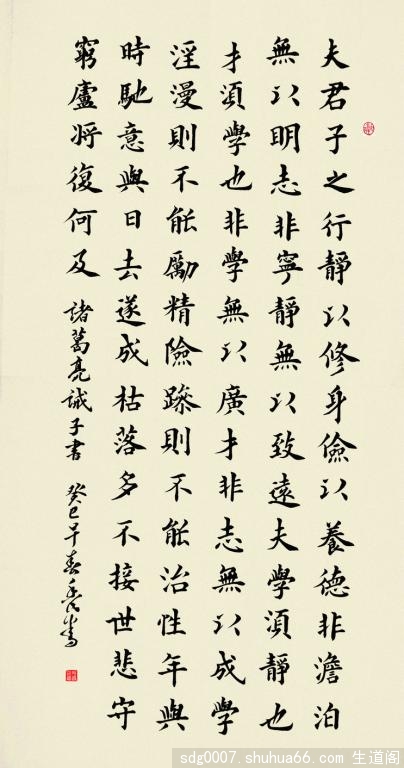 夫君子之行靜以修身儉以養德非澹泊
無以明志非寧靜無以致遠夫學須靜也
才須學也非學無以廣才非志無以成學
淫漫則不能勵精險躁則不能治性年與
時馳意與日去遂成枯落多不接世悲守
窮廬將復何及 諸葛亮誡子書 癸巳早春
sdg0007.shuhua66.com 生道阁